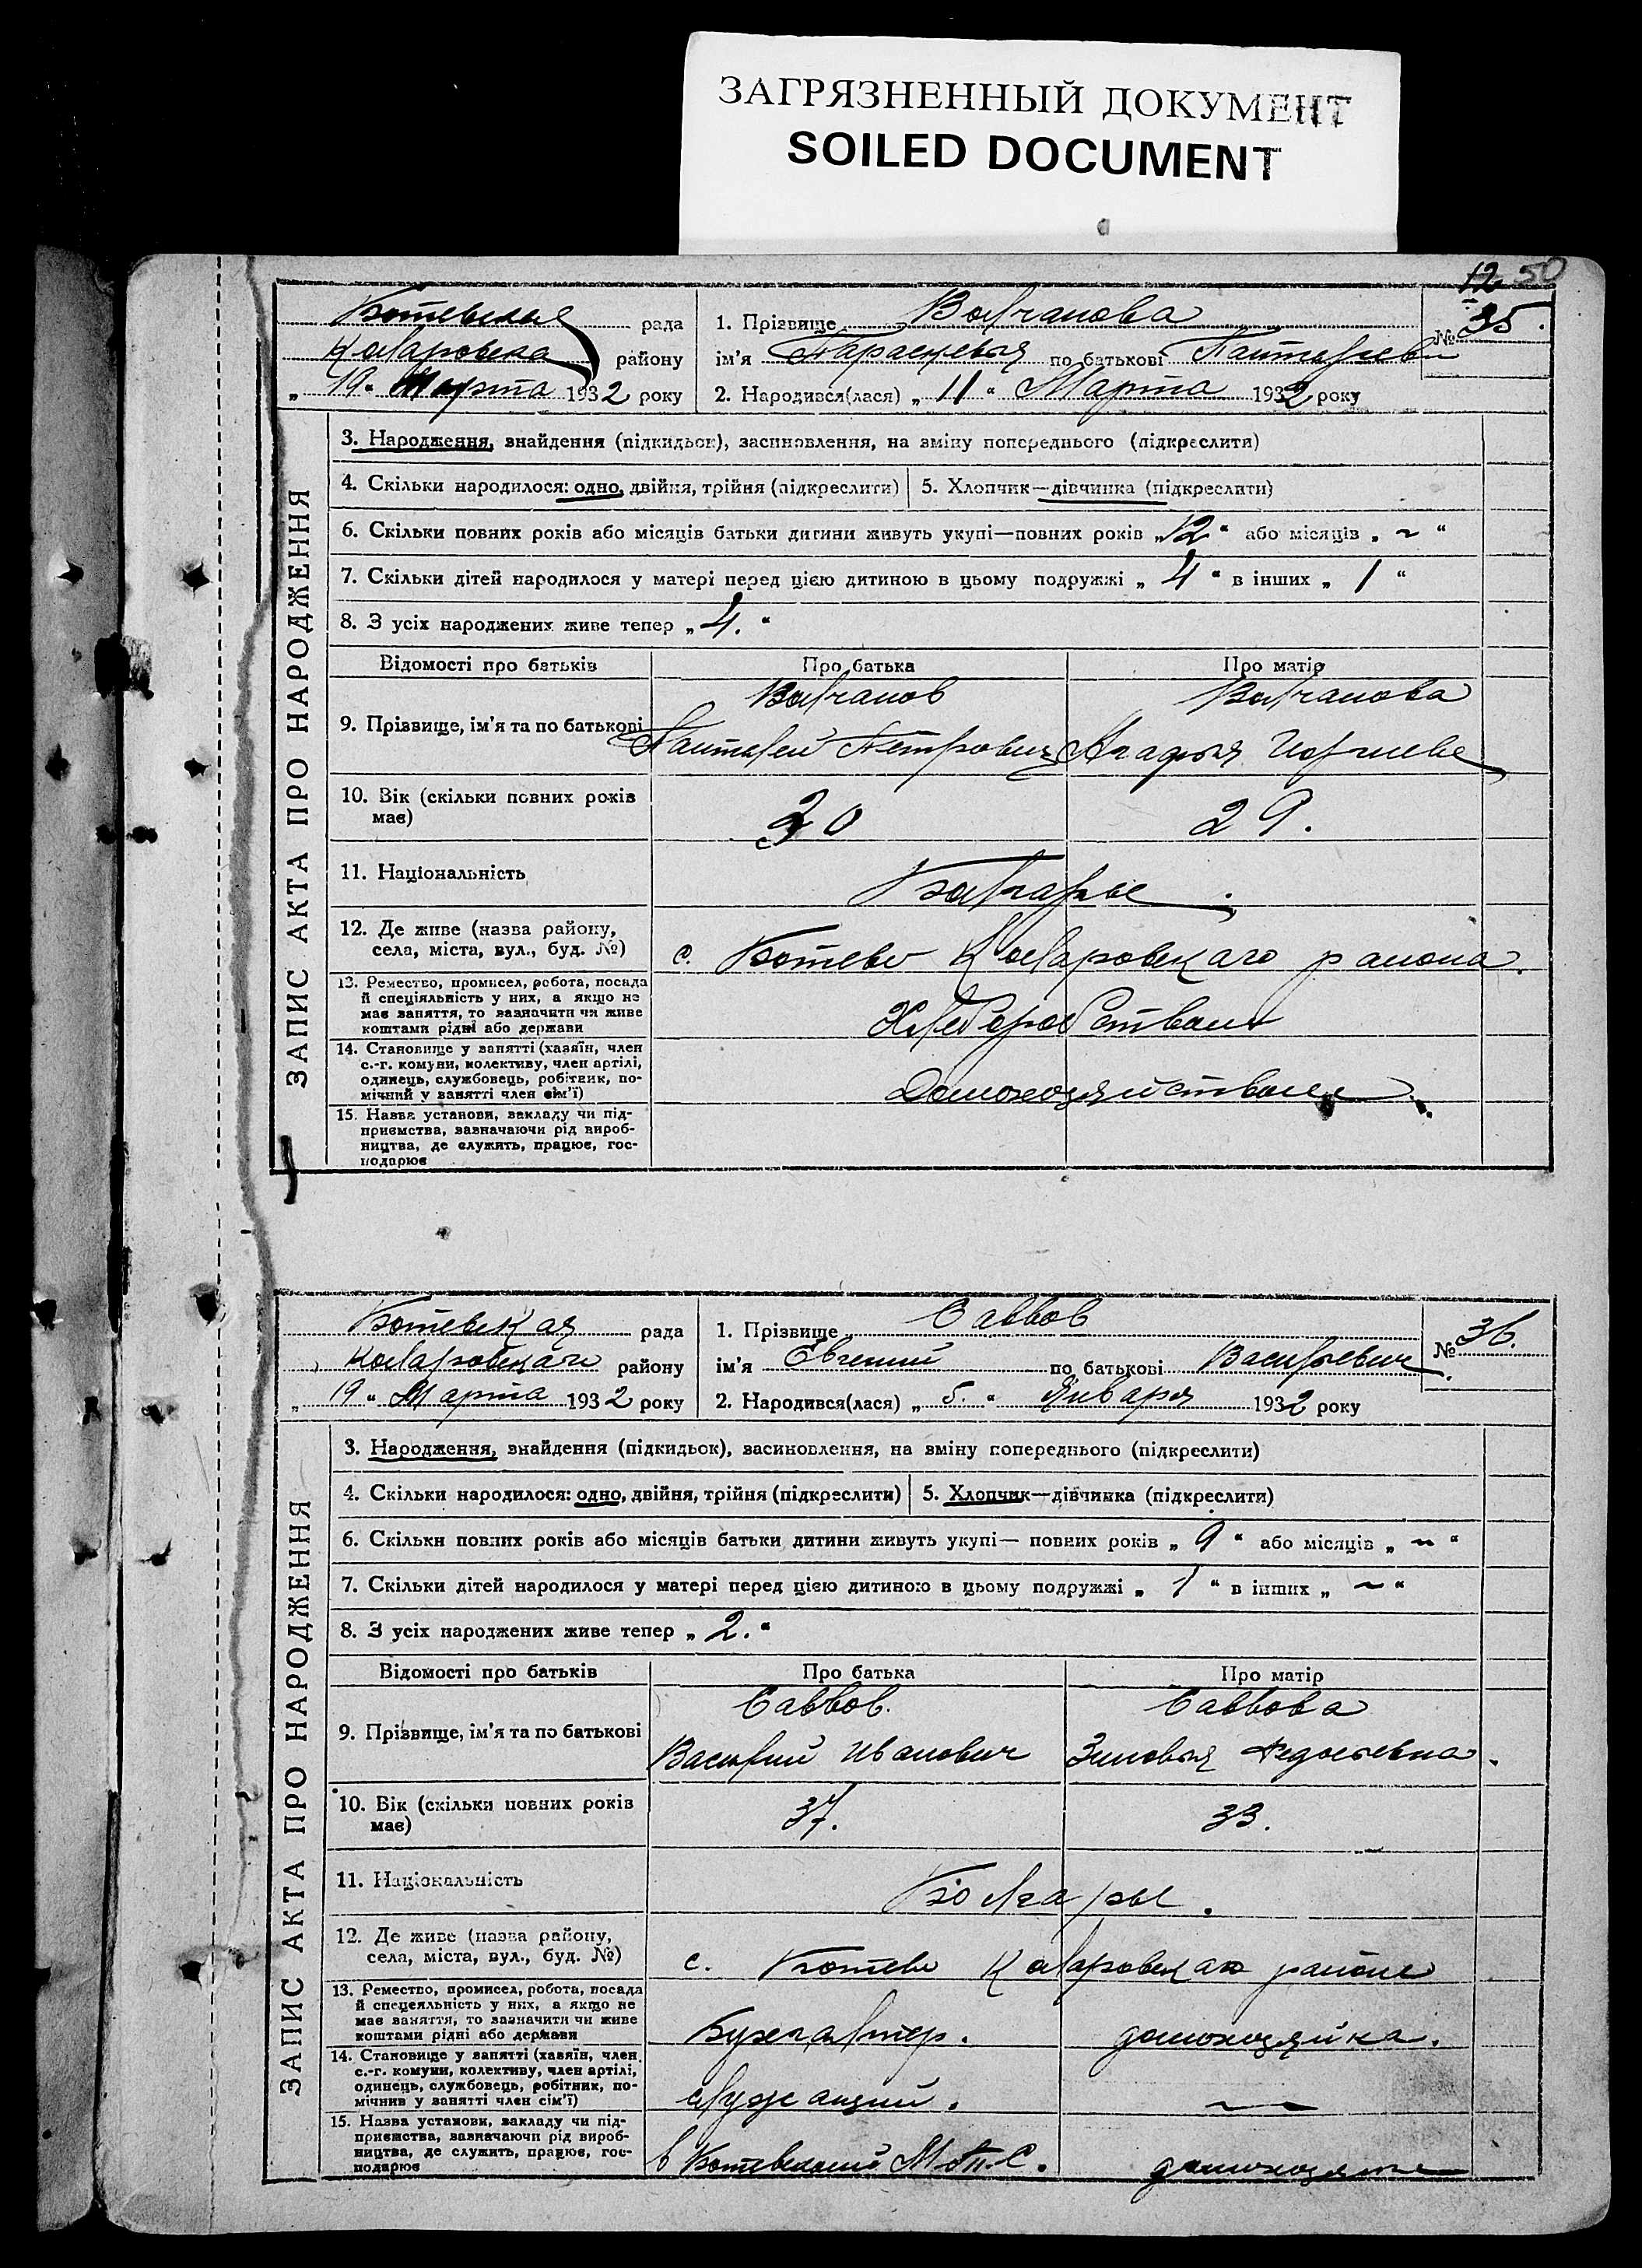 ЗАГРЯЗНЕННЫЙ ДОКУМЕНТ
SOILED DOCUMENT
12 50
Ботевская рада
Коларовска району
„ 19 “ Марта 1932 року
1. Прізвище Волчанова
№ 35.
ім'я Параскевья по батькові
2. Народився(лася) „ 11 “ Марта 1932 року
ЗАПИС АКТА ПРО НАРОДЖЕННЯ
3. Народження, знайдення (підкидьок), засиновлення, на зміну попереднього (підкреслити)
4. Скільки народилося: одно, двійня, трійня (підкреслити)
5. Хлопчик—дівчинка (підкреслити)
6. Скільки повних років або місяців батьки дитини живуть укупі—повних років „ 12 “ або місяців „ ~ “
7. Скільки дітей народилося у матері перед цією дитиною в цьому подружжі „ 4 “ в інших „ 1 “
8. З усіх народжених живе тепер „ 4. “
Відомості про батьків
Про батька
Про матір
9. Прізвище, ім'я та по батькові
Волчанов
Пантелей Петрович
Волчанова
Агафья
10. Вік (скільки повних років має)
30
29.
11. Національність
Болгары.
12. Де живе (назва району,
села, міста, вул., буд. №)
с. Ботево Коларовскаго района.
13. Ремество, промисел, робота, посада
й спеціяльність у них, а якщо не
має заняття, то зазначити чи живе
коштами рідні або держави
14. Становище у занятті (хазяїн, член
с.-г. комуни, колективу, член артілі,
одинець, службовець, робітник, по-
мічний у занятті член сім'ї)
15. Назва установи, закладу чи під-
приємства, зазначаючи рід вироб-
ництва, де служить, працює, гос-
подарює
Ботевская рада
Коларовскаго району
„ 19 “ Марта 1932 року
1. Прізвище Саввов
№ 36.
ім'я Евгений по батькові Васильевич.
2. Народився(лася) „ 5. “ Января 1932 року
ЗАПИС АКТА ПРО НАРОДЖЕННЯ
3. Народження, знайдення (підкидьок), засиновлення, на зміну попереднього (підкреслити)
4. Скільки народилося: одно, двійня, трійня (підкреслити)
5. Хлопчик—дівчинка (підкреслити)
6. Скільки повних років або місяців батьки дитини живуть укупі— повних років „ 9 “ або місяців „ ~ “
7. Скільки дітей народилося у матері перед цією дитиною в цьому подружжі „ 1 “ в інших „ ~ “
8. З усіх народжених живе тепер „ 2. “
Відомості про батьків
Про батька
Про матір
9. Прізвище, ім'я та по батькові
Саввов.
Василий Иванович
Саввова
Зиновья Федосеевна.
10. Вік (скільки повних років має)
37.
33.
11. Національність
Болгары.
12. Де живе (назва району,
села, міста, вул., буд. №)
с. Ботево Коларовскаго района
13. Ремество, промисел, робота, посада
й спецеяльність у них, а якщо не
має заняття, то зазначити чи живе
коштами рідні або держави
Бухгалтер.
домохозяйка.
14. Становище у занятті (хазяїн, член
с.-г. комуни, колективу, член артілі,
одинець, службовець, робітник, по-
мічний у занятті член сім'ї)
служащий.
15. Назва установи, закладу чи під-
приємства, зазначаючи рід вироб-
ництва, де служить, працює, гос-
подарює
в Ботевский